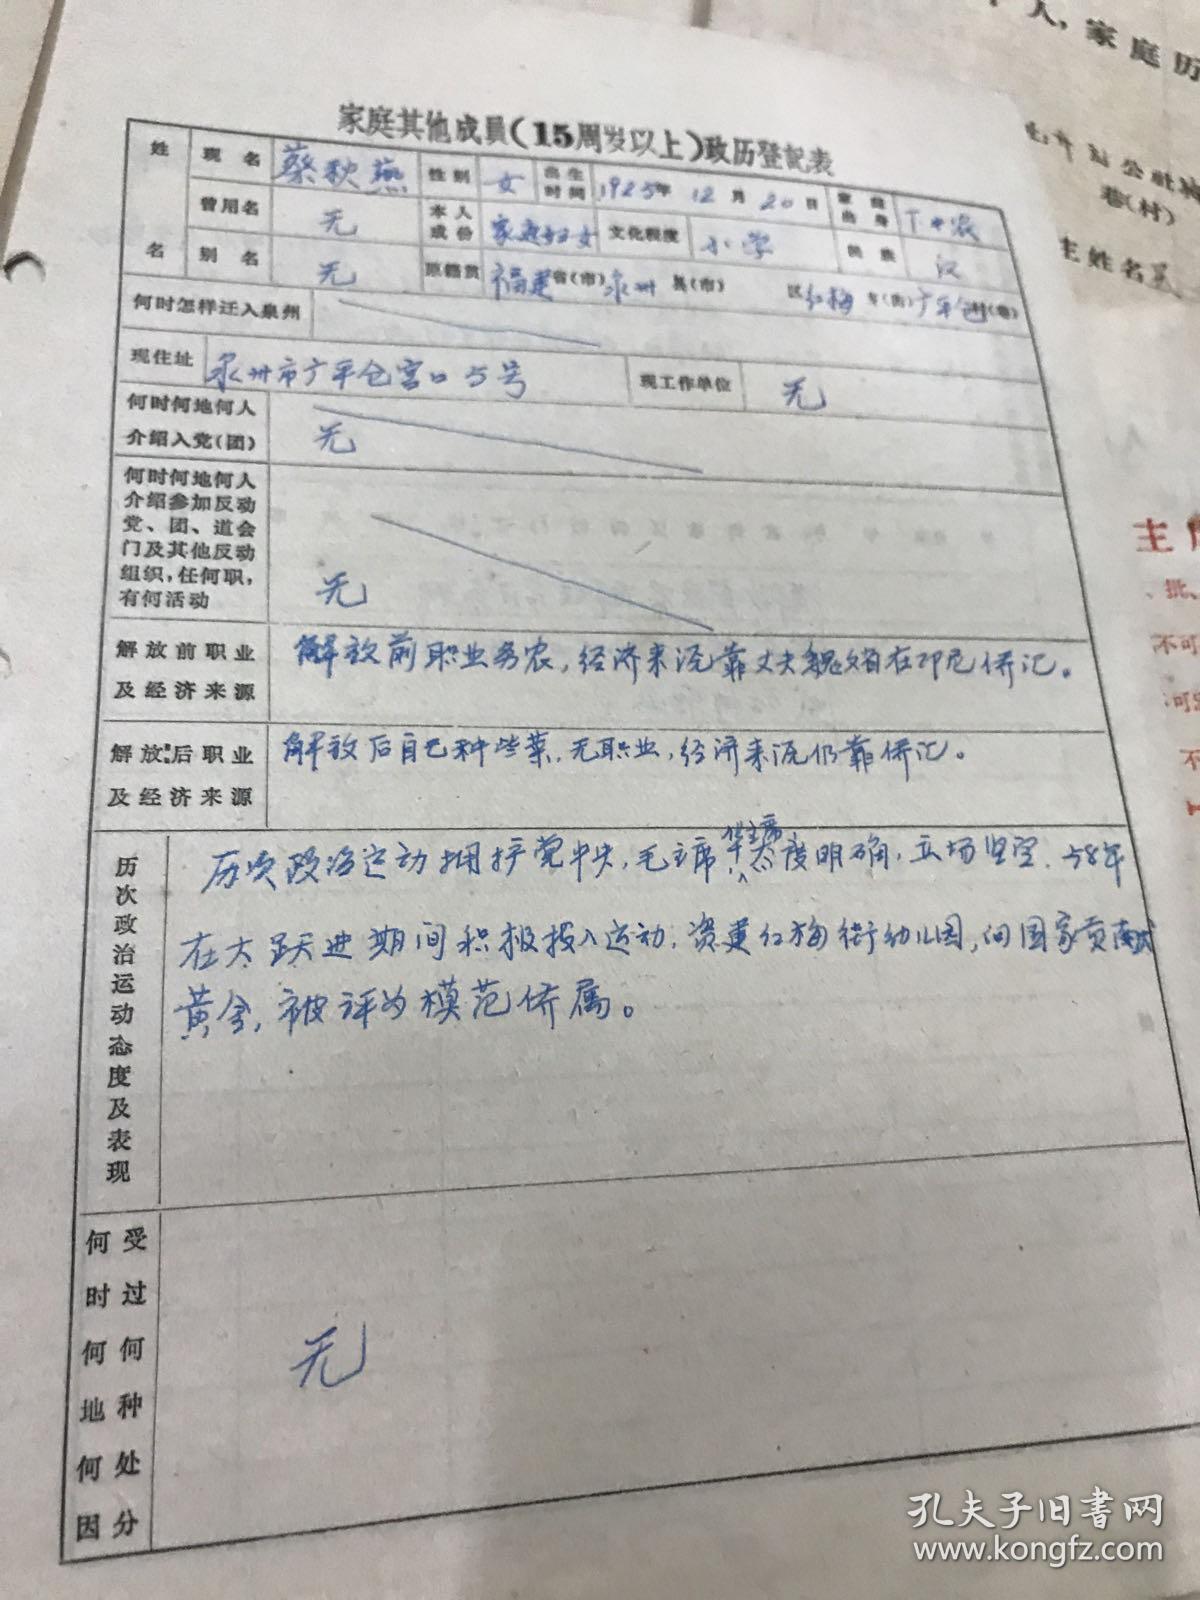 人，家庭历
公社
巷(村)
主姓名吴
家庭其他成員(15周岁以上)政历登記表
姓名 现名 蔡秋燕 性别 女 出生时间 1925年12月20日 家庭出身 下中农
曾用名 无 本人成份 家庭妇女 文化程度 小学 民族 汉
别名 无 原籍贯 福建省(市)泉州县(市) 区红梅乡(街)广平仓村(巷)
何时怎样迁入泉州
现住址 泉州市广平仓宫口5号 现工作单位 无
何时何地何人
介绍入党(团) 无
何时何地何人
介绍参加反动
党、团、道会
门及其他反动
组织,任何职,
有何活动 无
解放前职业
及经济来源 解放前职业务农,经济来沅靠丈夫魏文省在印尼侨汇。
解放后职业
及经济来源 解放后自己种些菜,无职业,经济来沅仍靠侨汇。
历次政治运动态度及表现
历次政治运动拥护党中央,毛主席华主席态度明确,立场坚定.58年
在大跃进期间积极投入运动,资建红梅街幼儿园,向国家贡献
黄金,被评为模范侨属。
何时何地何因
受过何种处分
无
主
、批、
不可
可
不
孔夫子旧書网
www.kongfz.com